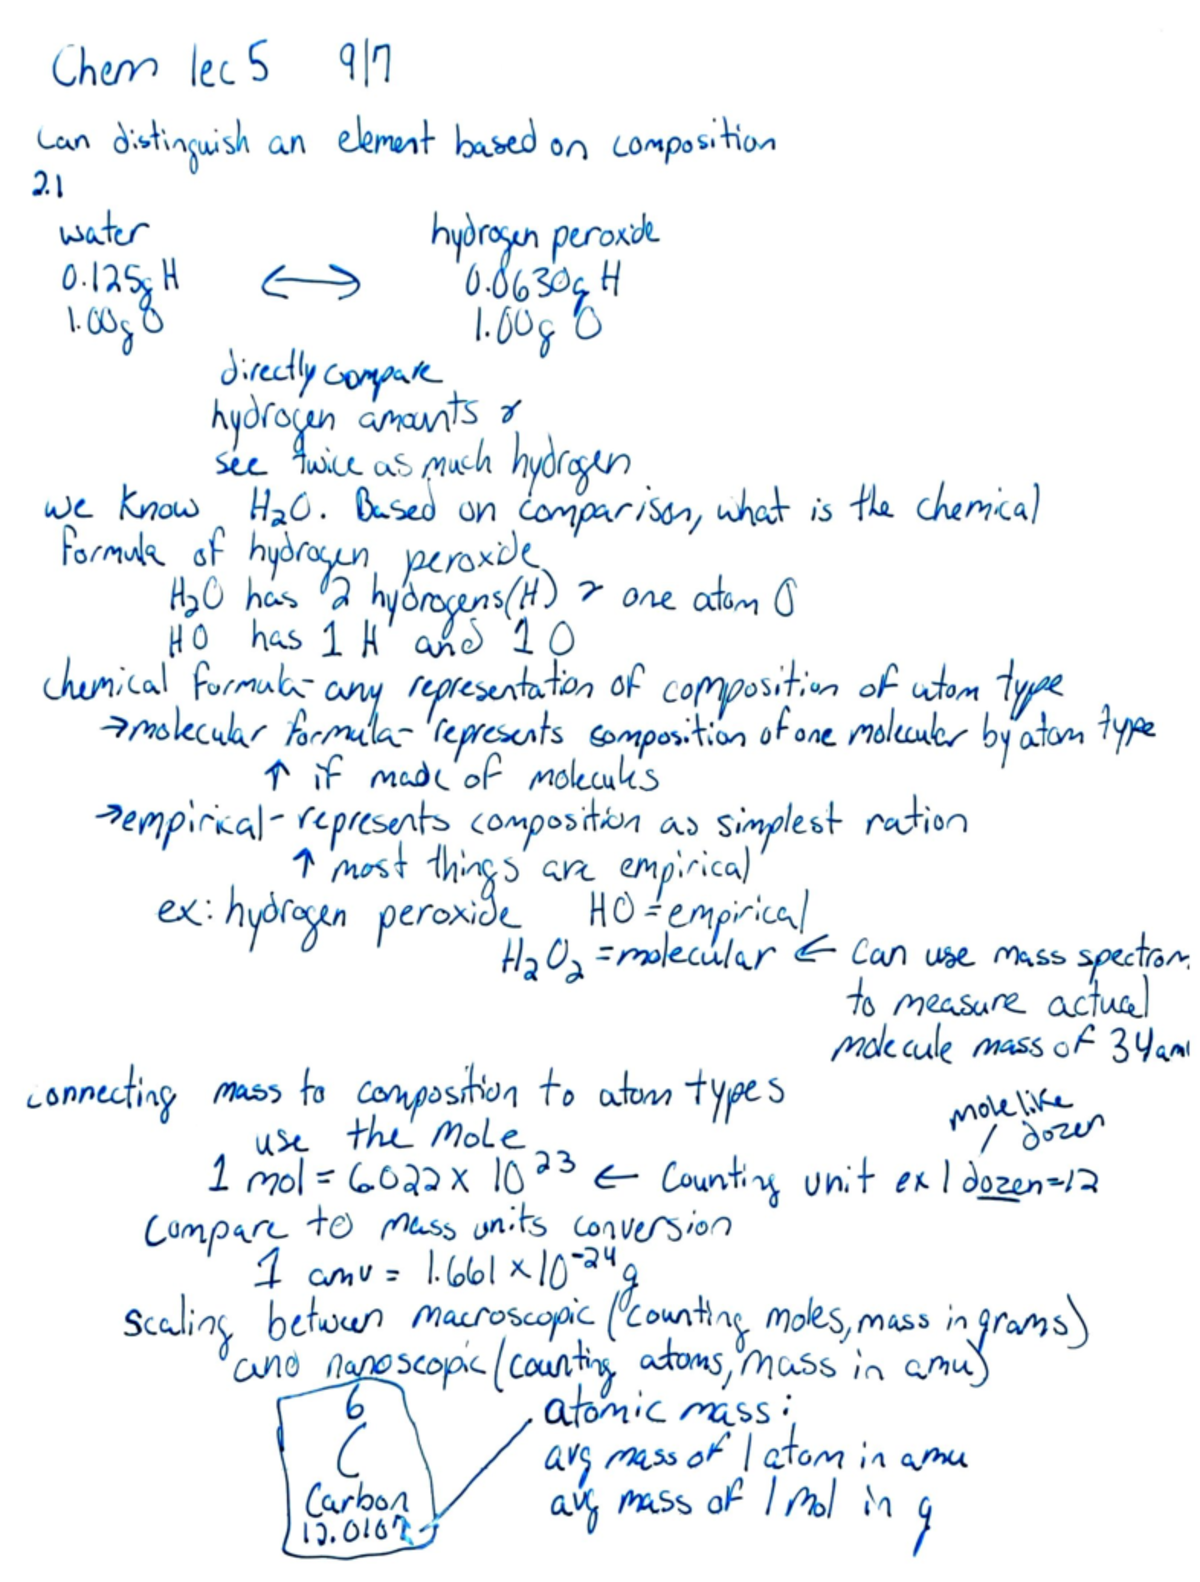 Chem lec 5 9/7
Can distinguish an element based on composition
2.1
water hydrogen peroxide
0.125g H ↔ 0.0630g H
1.00g O 1.00g O
directly compare
hydrogen amounts &
see twice as much hydrogen
we know H₂O. Based on comparison, what is the chemical
formula of hydrogen peroxide
H₂O has 2 hydrogens(H) & one atom O
HO has 1 H and 1 O
chemical formula- any representation of composition of atom type
→molecular formula- represents composition of one molecular by atom type
↑ if made of molecules
→empirical- represents composition as simplest ration
↑ most things are empirical
ex: hydrogen peroxide HO = empirical
H₂O₂ = molecular ← Can use mass spectrom.
to measure actual
molecule mass of 34 am
connecting mass to composition to atom types
use the mole
mole like
/ dozen
1 mol = 6.022 x 10²³ ← Counting unit ex 1 dozen=12
Compare to mass units conversion
1 amu = 1.661 x 10⁻²⁴ g
scaling between macroscopic (counting moles, mass in grams)
and nanoscopic (counting atoms, mass in amu)
6
C
Carbon
12.0107
atomic mass:
avg mass of 1 atom in amu
avg mass of 1 mol in g